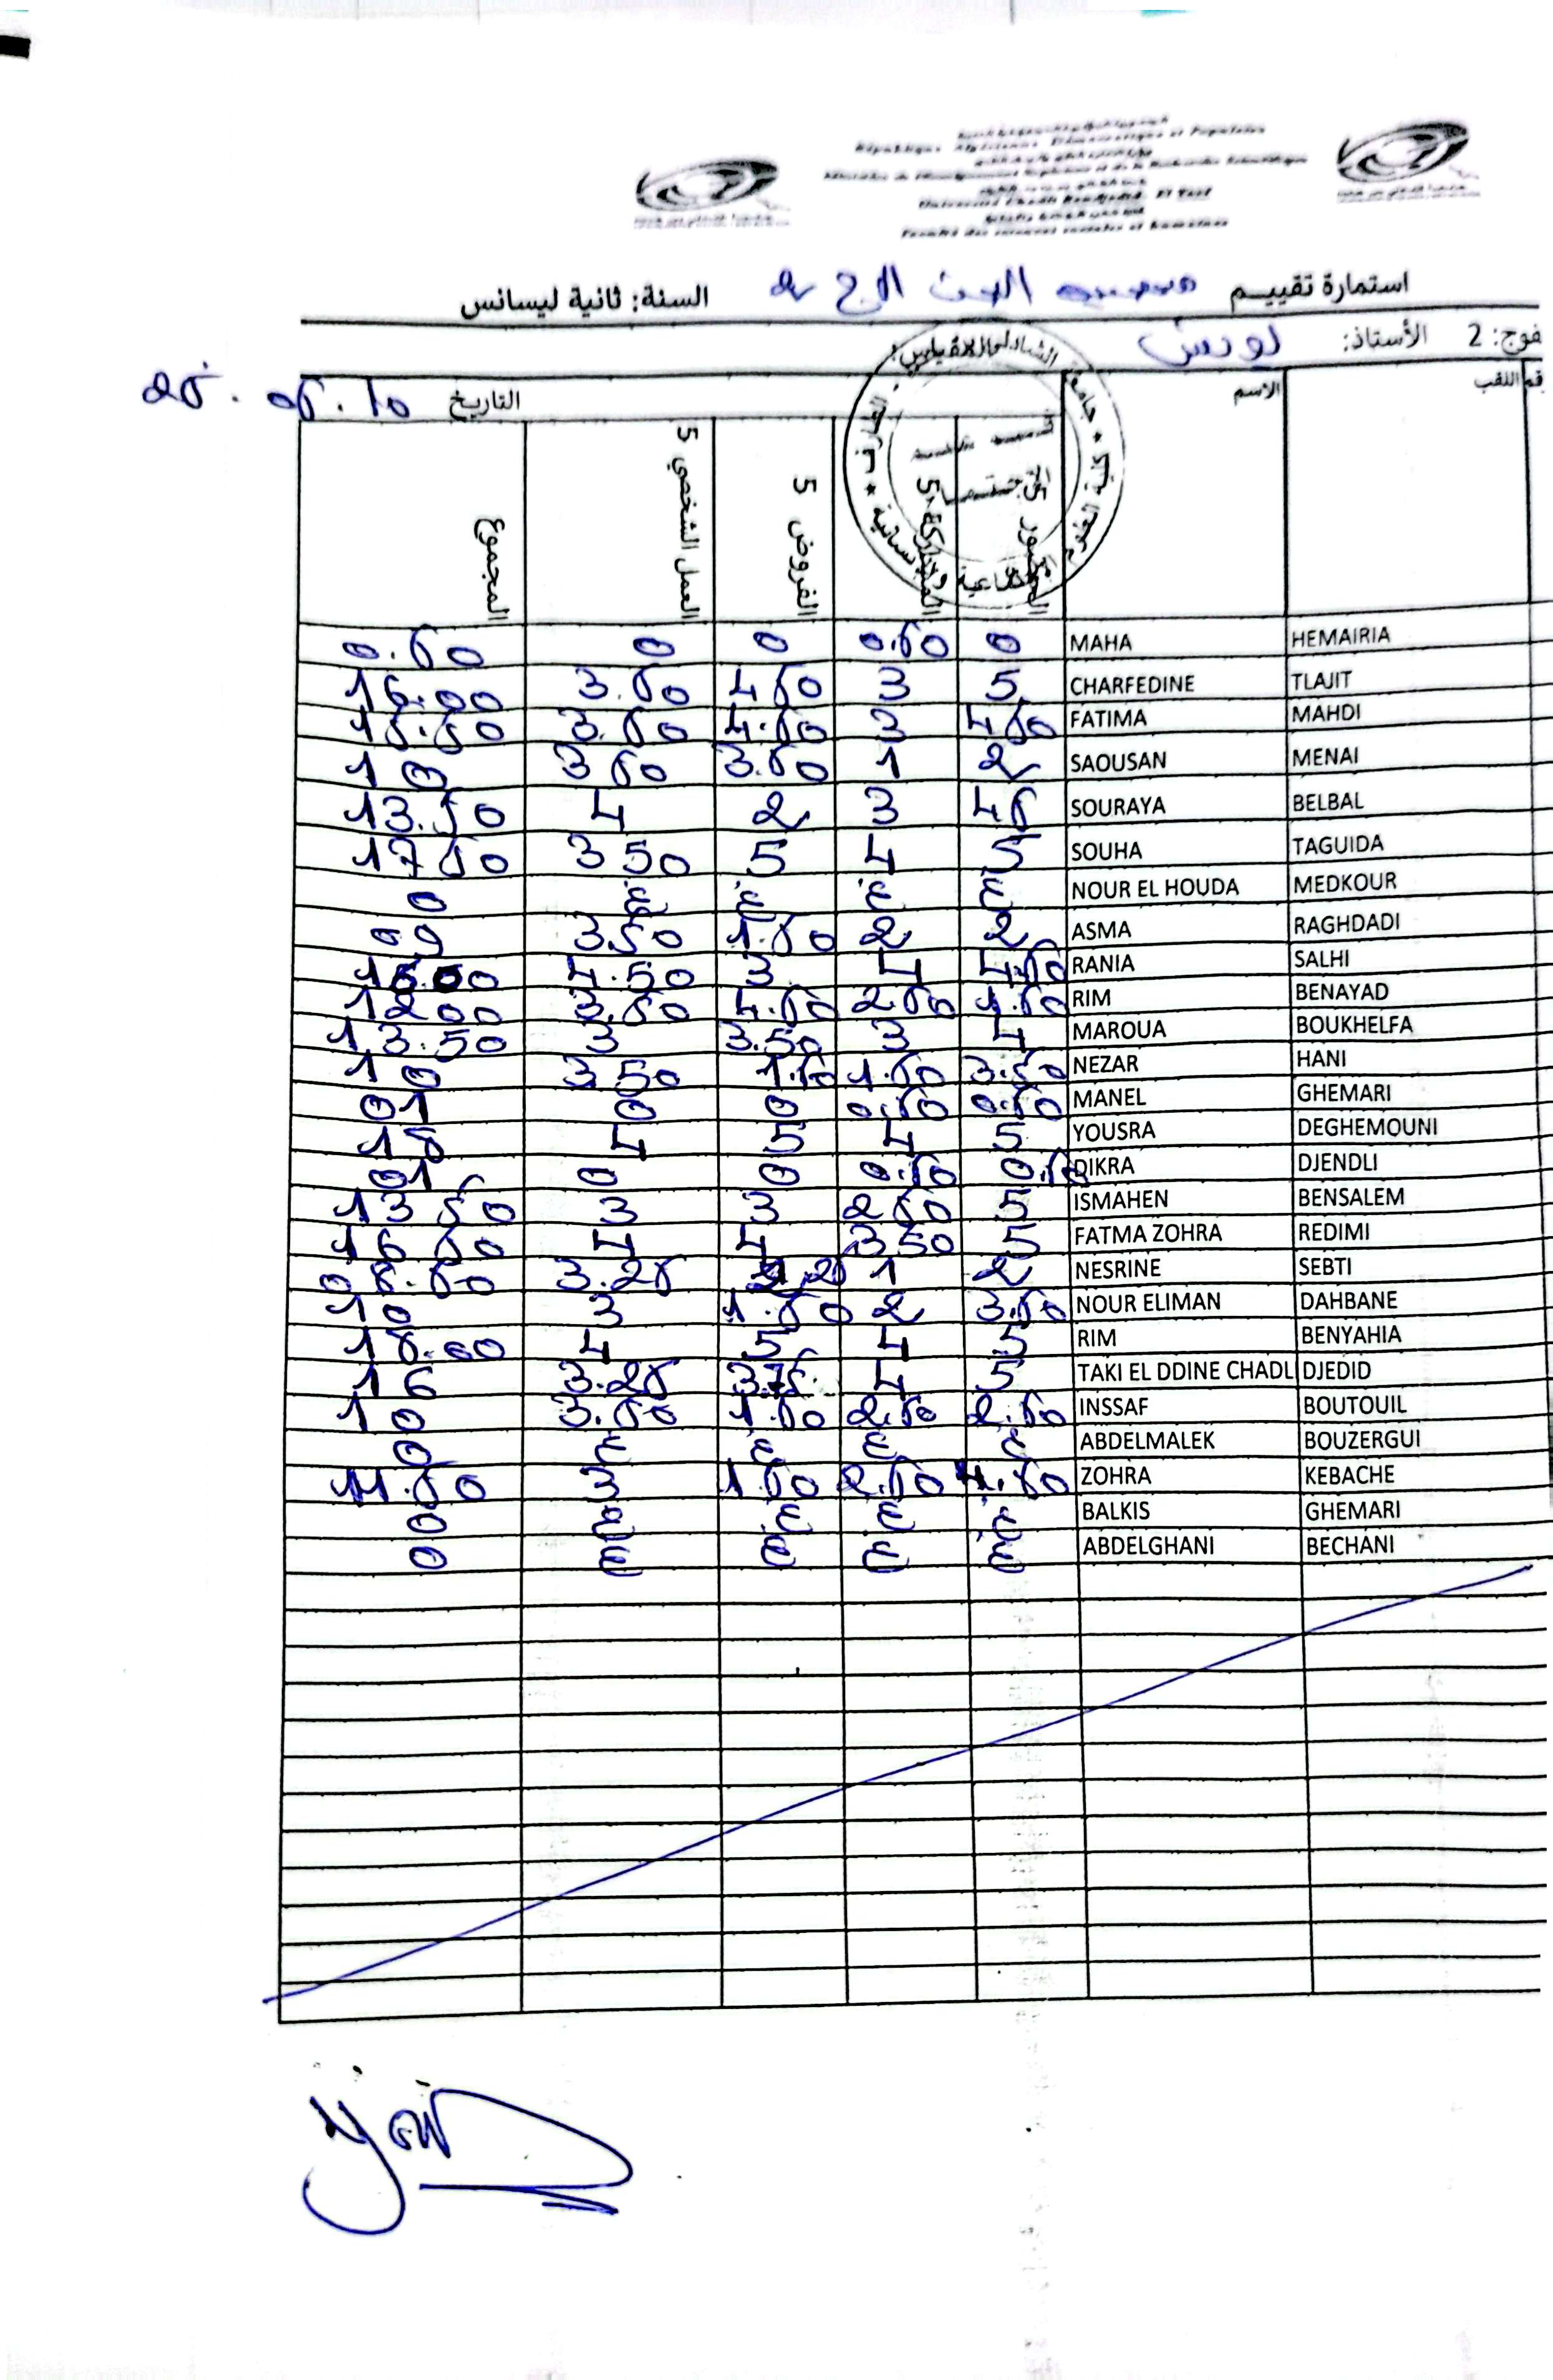 République Algérienne Démocratique et Populaire
Université Chadli Bendjedid El Tarf
Faculté des sciences sociales et humaines
استمارة تقييم 2 السنة: ثانية ليسانس
فوج: 2 الأستاذ:
اللقب الاسم التاريخ 10
الفروض 5 العمل الشخصي 5 المجموع
HEMAIRIA MAHA 0 0.50 0 0 0.50
TLAJIT CHARFEDINE 5 3 4 50 3.50 16.00
MAHDI FATIMA 4 50 3 4.50 3.50 15.50
MENAI SAOUSAN 2 1 3.50 3 50 10
BELBAL SOURAYA 4 5 3 2 4 13.50
TAGUIDA SOUHA 5 4 5 3 50 17 50
MEDKOUR NOUR EL HOUDA غ غ غ غ 0
RAGHDADI ASMA 2 2 1.50 3.50 09
SALHI RANIA 4.50 4 3 4.50
BENAYAD RIM 1.50 2.50 4.50 3.50 12 00
BOUKHELFA MAROUA 4 3 3.50 3 13.50
HANI NEZAR 3.50 1.50 1.50 3.50 10
GHEMARI MANEL 0.50 0.50 0 0 01
DEGHEMOUNI YOUSRA 5 4 5 4 18
DJENDLI DIKRA 0.50 0.50 0 0 01
BENSALEM ISMAHEN 5 2 50 3 3 13 50
REDIMI FATMA ZOHRA 5 3.50 4 4 16 50
SEBTI NESRINE 2 1 2.25 3.25 08.50
DAHBANE NOUR ELIMAN 3.50 2 1.50 3 10
BENYAHIA RIM 5 4 5 4 18.00
DJEDID TAKI EL DDINE CHADL 5 4 3.75 3.25 16
BOUTOUIL INSSAF 2.50 2.50 1.50 3.50 10
BOUZERGUI ABDELMALEK غ غ غ غ 0
KEBACHE ZOHRA 4.50 2.50 1.50 3 11.50
GHEMARI BALKIS غ غ غ غ 0
BECHANI ABDELGHANI غ غ غ غ 0